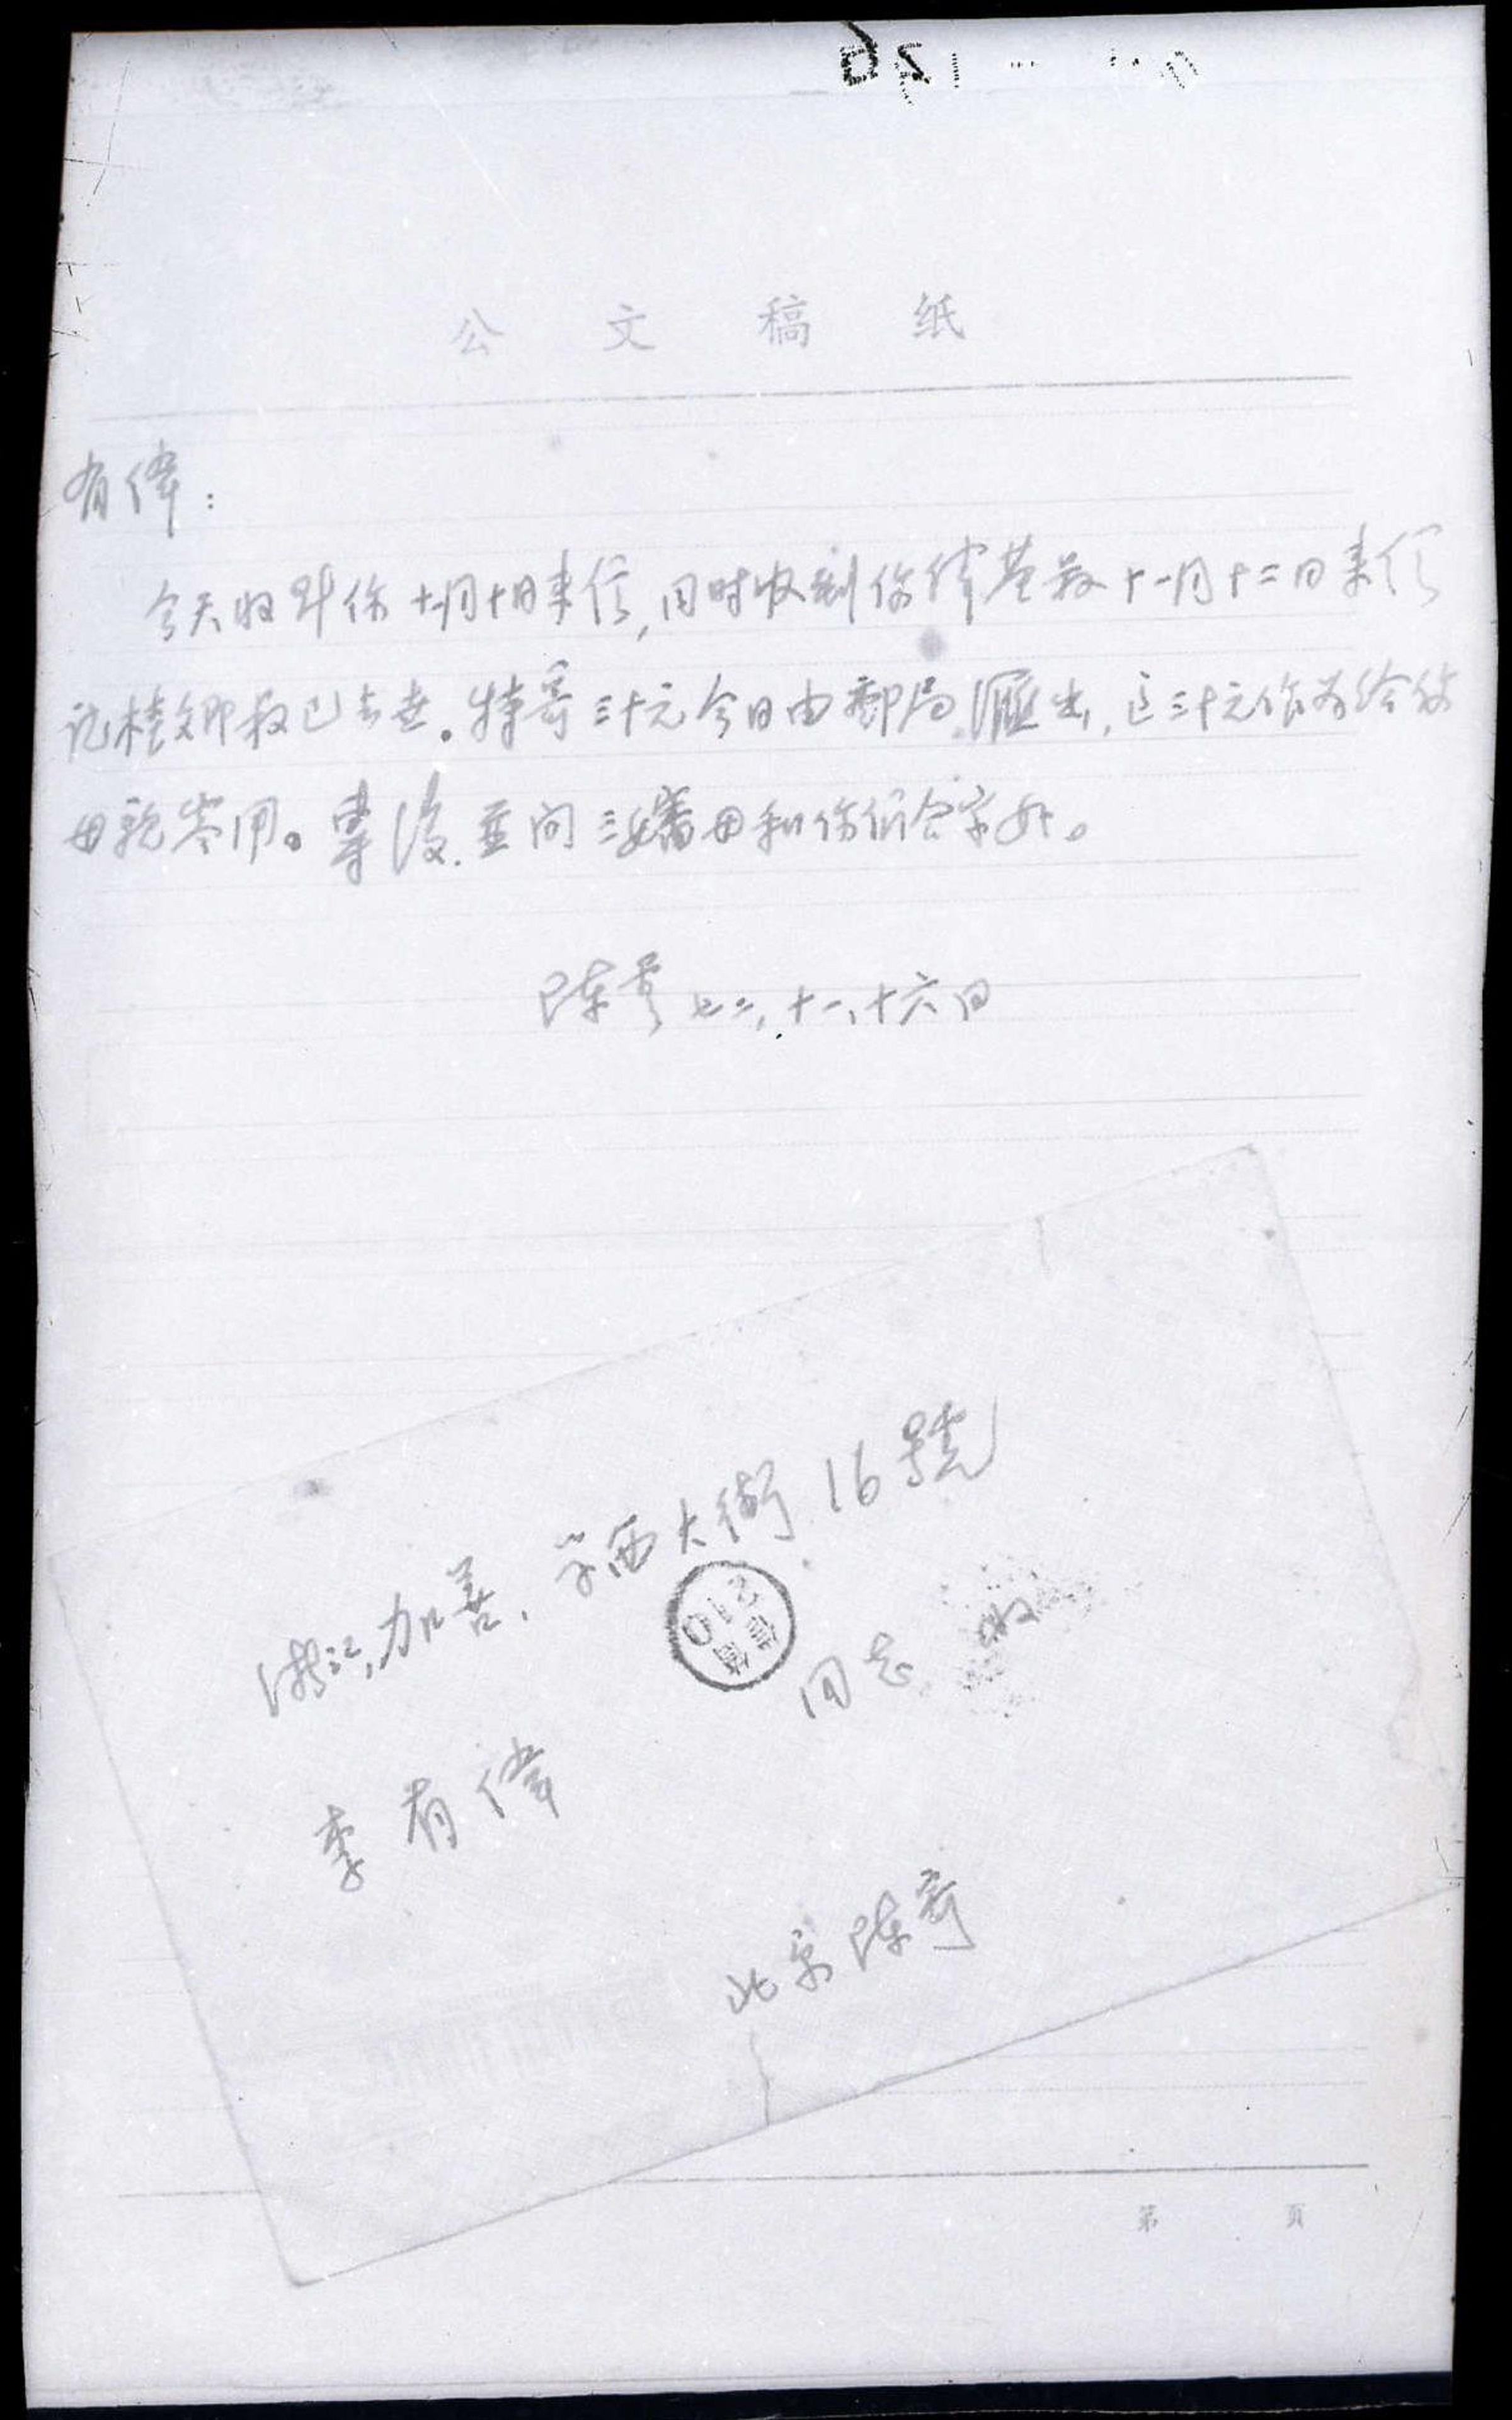 公文稿纸
有偉：
今天收到你十一月十日来信，同时收到你偉基叔十一月十二日来信
说桂卿叔已去世。特寄三十元今日由郵局匯出，这三十元作为给你
母親零用。專復。並问三嬸母和你们合家好。
陈雲 七二，十一、十六日
浙江，加善，西大街16號
同志 收
李有偉
北京陈寄
第 页